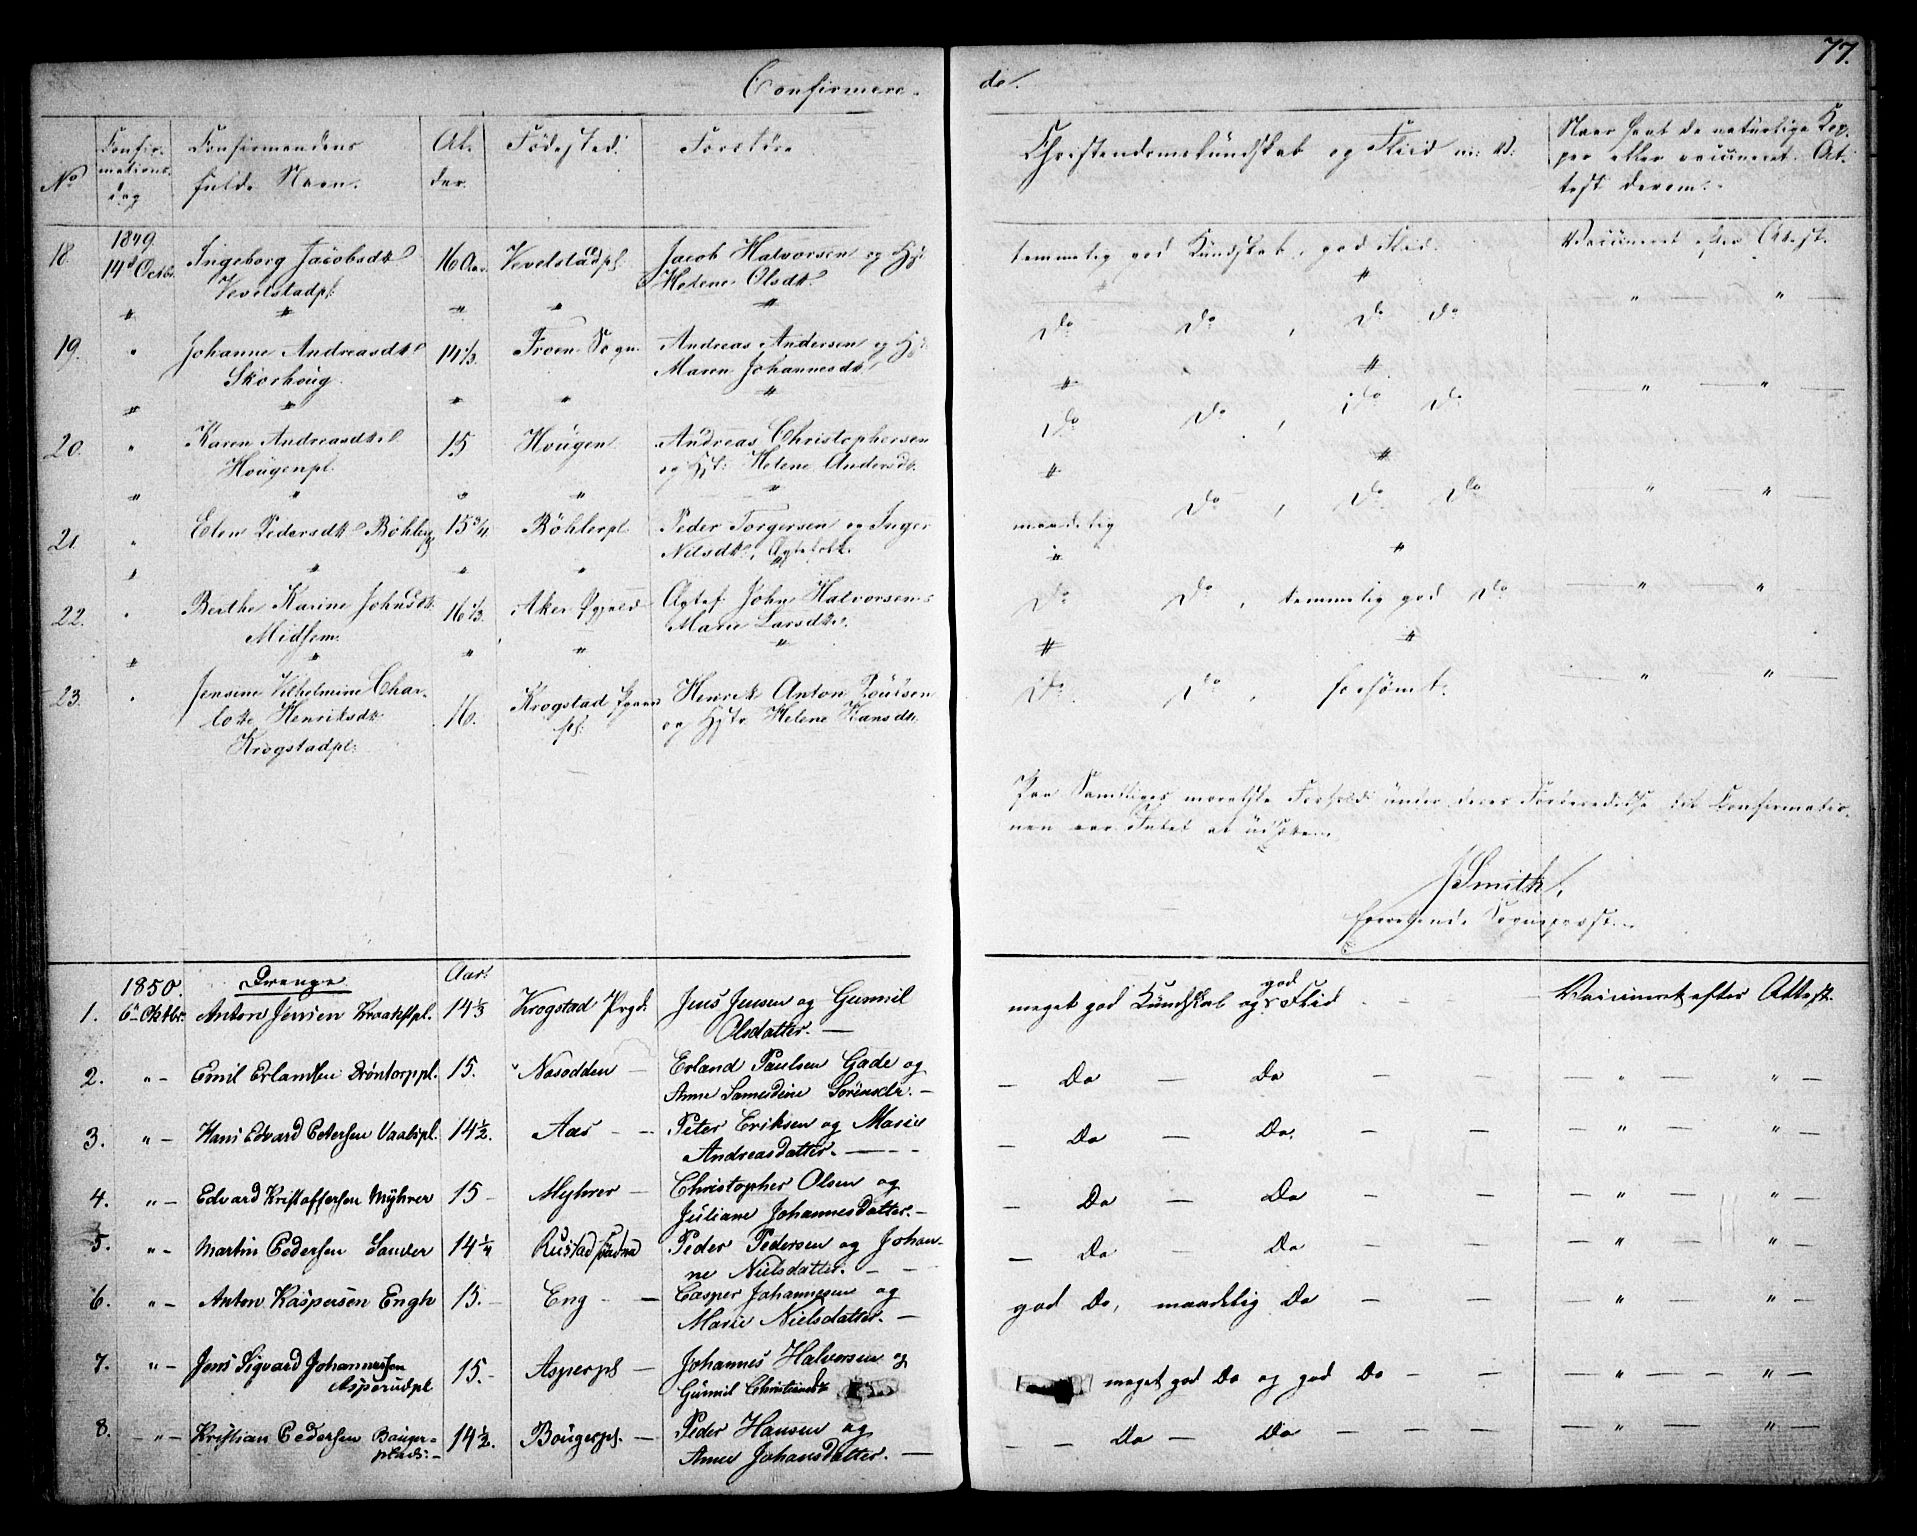 77.
Confirmere-
de.
No
Confir-
mations-
dag
Confirmandens
fulde Navn.
Al-
der.
Fødested.
Forældre
Christendomskundskab og Flid m: V:
Naar havt de naturlige Kop-
per eller vaccineret. At-
test derom.
18. 1849. 14de Octbr. Ingeborg Jacobsdt. Vevelstadpl. 16 Aar Vevelstadpl. Jacob Halvorsen og Hst.
Helene Olsdt.
temmelig god Kundskab, god Flid. Vaccineret efter Attest.
19. " Johanne Andreasdt. 14 1/3. Froen Sogn. Andreas Andersen og H
Skorhoug. Maren Johannesdt.
Do Do, Do Do — " — " —
20. " Karen Andreasdt. 15 Hougen Andreas Christophersen
Hougenpl. og Hst: Helene Andersdt.
Do Do, Do Do — " — " —
21. " Elen Pedersdt. Bøhler 15 3/4 Bøhlerpl. Peder Torgersen og Inger
Nilsdt., Ægtefolk.
maadelig Do, Do Do — " — " —
22. " Berthe Karine Johnsdt. 16 1/3. Aker Pgjeld John Halvorsen
Midsem. Marie Larsdt.
Do Do, temmelig god Do — " — " —
23. " Jensine Vilhelmine Char-
lotte Henriksdt. 16. Krogstad Henrik Anton Poulsen
Krogstadpl: pl: og Hst. Helene Hansdt.
Do Do, forsømt. — " — " —
Paa Samtliges moralske Forhold under deres Forberedelse til Confirmatio-
nen var Intet at udsætte.
J Smith,
Sognepræst.
1850. Drenge Aar:
1. 6te Oktbr. Anton Jensen Kraakstpl. 14 1/3 Krogstad Prgd. Jens Jensen og Gunnil
Olsdatter. —
meget god Kundskab og god Flid - - - Vaccineret efter Attest.
2. " — Emil Erlandsen Drøntorppl. 15. Nesodden — Erland Paulsen Gade og
Anne Samesdine Sørensdr. —
— Do — Do — — — " — " —
3. " — Hans Edvard Petersen Vaalspl. 14 1/2. Aas — — Peter Eriksen og Marie
Andreasdatter. — - -
— Do — Do. — — — " — " —
4. " — Edvard Kristoffersen Myhrer 15 — Myhrer — Christopher Olsen og
Juliane Johannesdatter. —
— Do — Do — — — " — " —
5. " — Martin Pedersen Sander 14 1/4 Rustad Peder Pedersen og Johan-
ne Nielsdatter. — —
— Do — Do — — — " — " —
6. " — Anton Kaspersen Engh 15. — Eng - — Casper Johannesen og
Marie Nielsdatter. —
god Do, maadelig Do — — — " — " —
7. " — Jens Sigvard Johannessen 15. — Asperpl — Johannes Halvorsen og
Asperudpl Gunnil Christiansdt
meget god Do og god Do — — — " — " —
8. — " — Kristian Pedersen Bauger- 14 1/2. Bougerpl. — Peder Hansen og
plads: - Anne Johansdatter. —
— — Do — Do — — — — " — " —